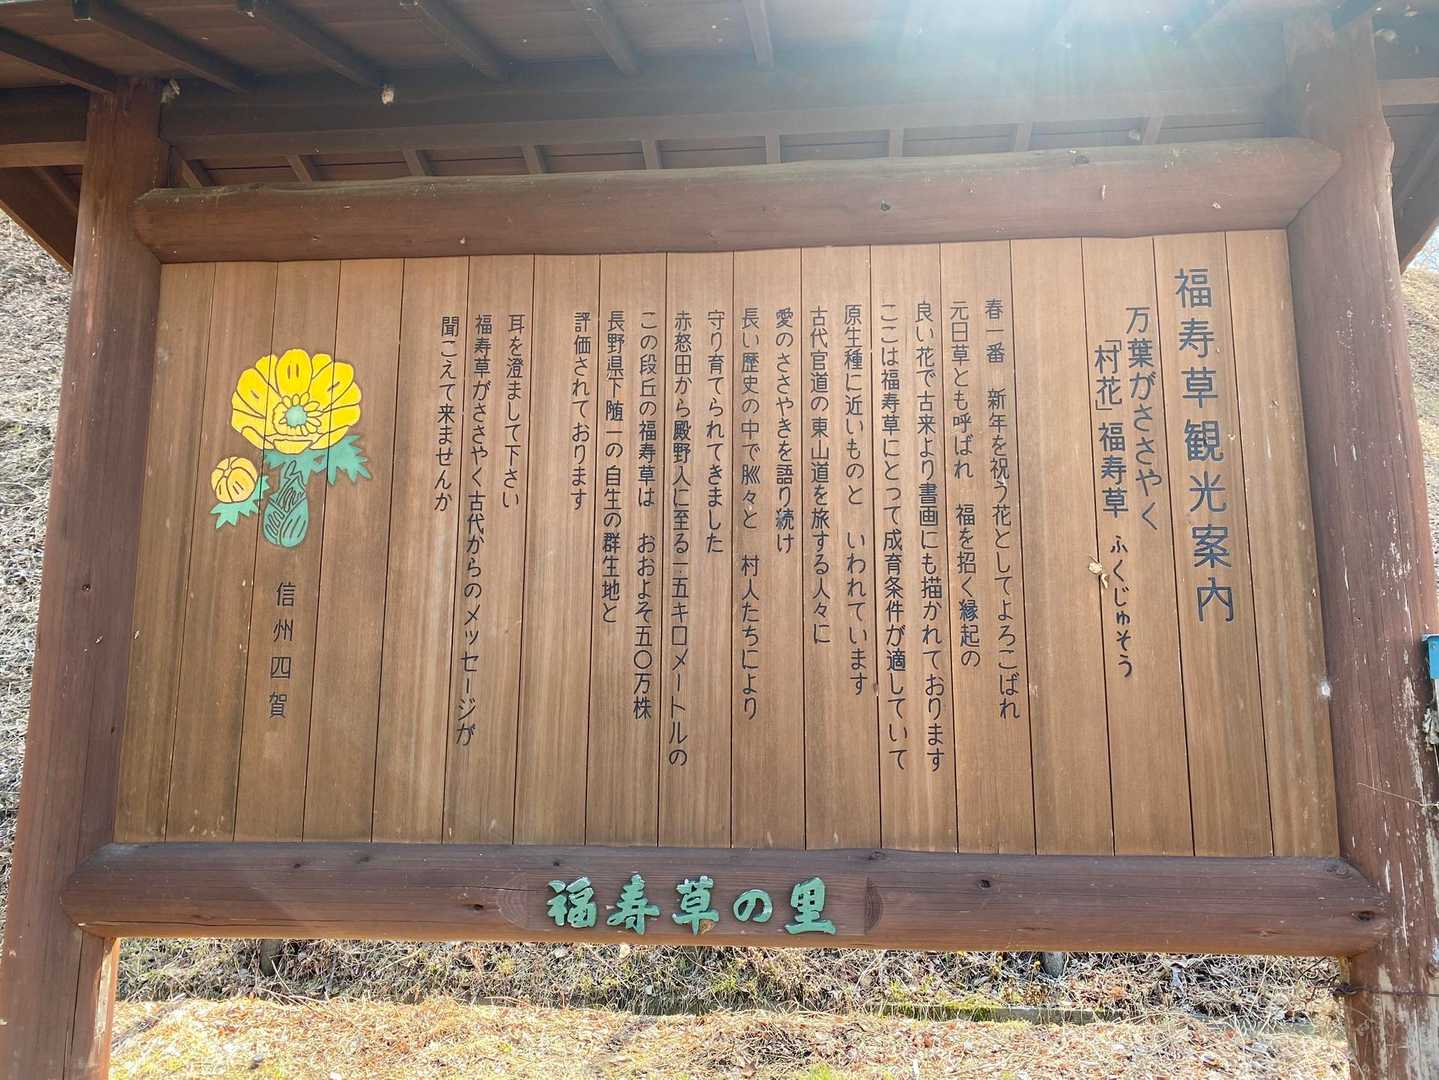 福寿草観光案内
万葉がささやく
「村花」福寿草 ふくじゅそう
春一番 新年を祝う花としてよろこばれ
元日草とも呼ばれ 福を招く縁起の
良い花で古来より書画にも描かれております
ここは福寿草にとって成育条件が適していて
原生種に近いものと いわれています
古代官道の東山道を旅する人々に
愛のささやきを語り続け
長い歴史の中で脈々と 村人たちにより
守り育てられてきました
赤怒田から殿野入に至る一・五キロメートルの
この段丘の福寿草は おおよそ五〇万株
長野県下随一の自生の群生地と
評価されております
耳を澄まして下さい
福寿草がささやく古代からのメッセージが
聞こえて来ませんか
信州四賀
福寿草の里